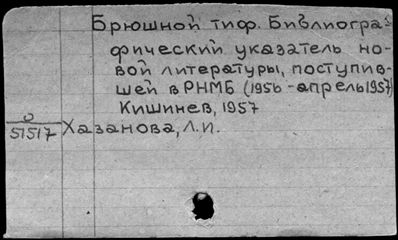 Брюшной тиф. Библиогра-
фический указатель но-
вой литературы, поступив-
шей в РНМБ (1956 - апрель 1957)
Кишинев, 1957
0
51517 Хазанова, Л.И.